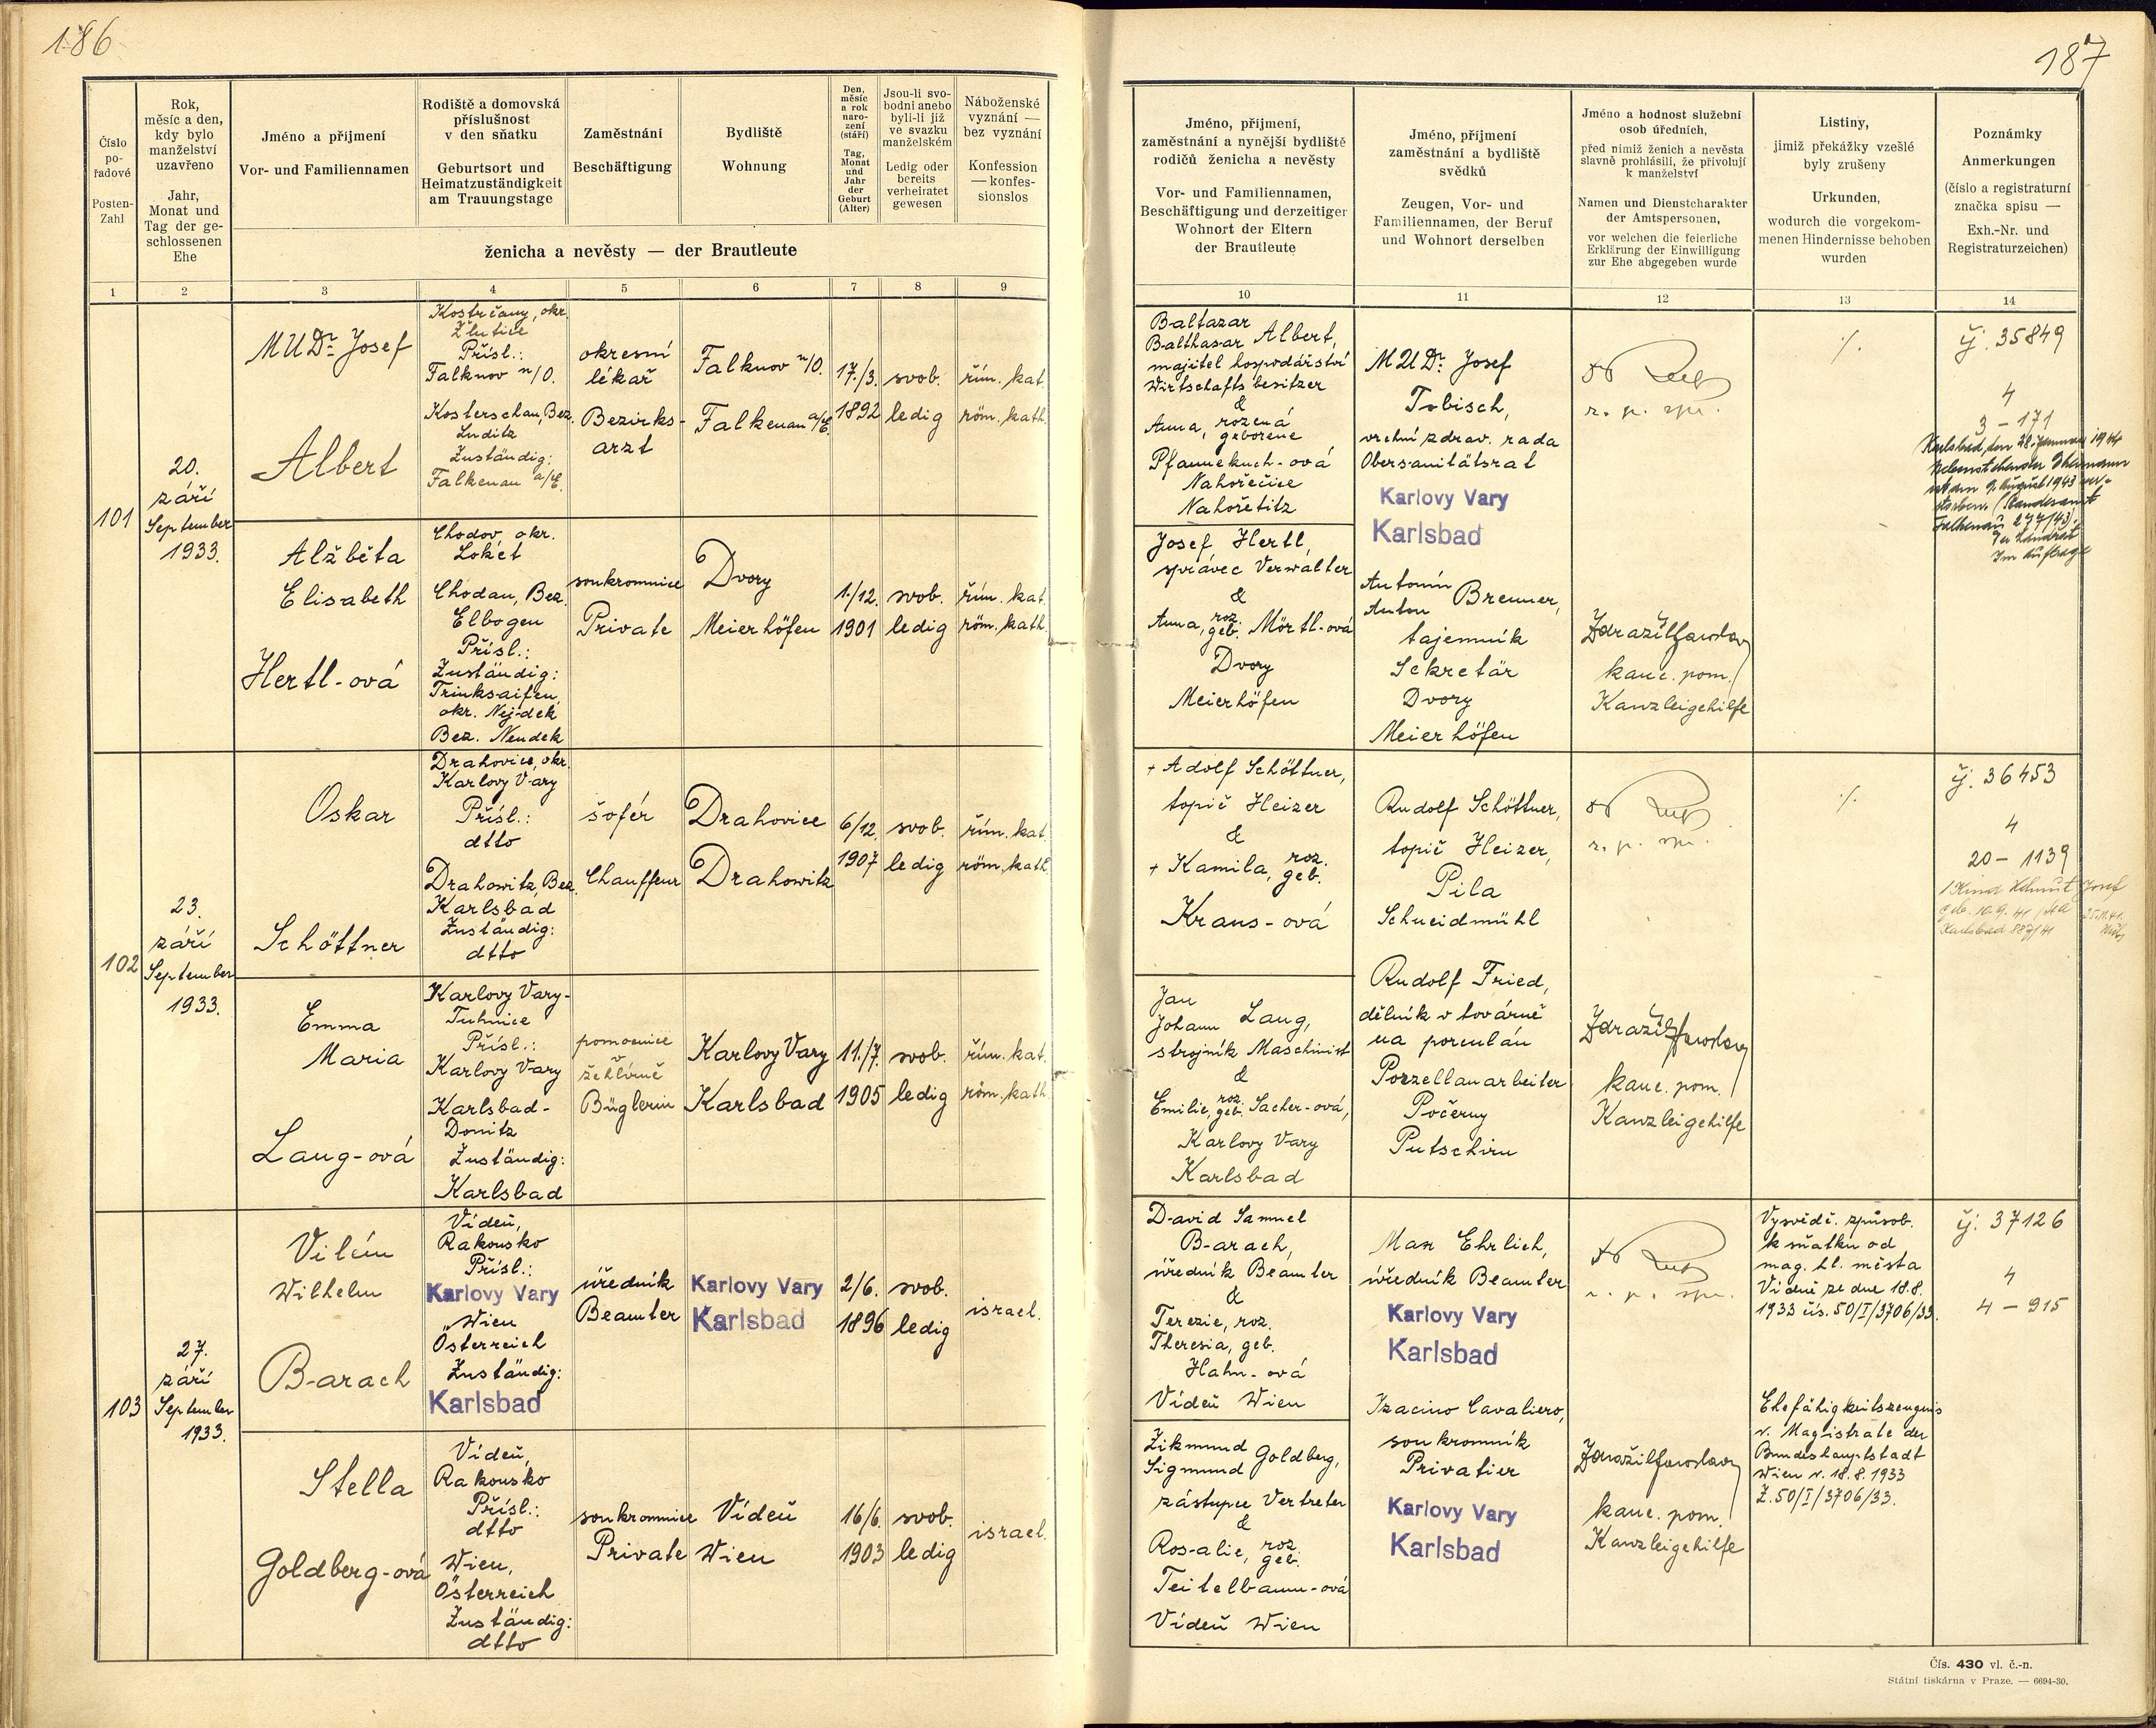 186
Číslo pořadové
Posten-Zahl
Rok, měsíc a den, kdy bylo manželství uzavřeno
Jahr, Monat und Tag der geschlossenen Ehe
Jméno a příjmení
Vor- und Familiennamen
Rodiště a domovská příslušnost v den sňatku
Geburtsort und Heimatzuständigkeit am Trauungstage
Zaměstnání
Beschäftigung
Bydliště
Wohnung
Den, měsíc a rok narození (stáří)
Tag, Monat und Jahr der Geburt (Alter)
Jsou-li svobodni anebo byli-li již ve svazku manželském
Ledig oder bereits verheiratet gewesen
Náboženské vyznání — bez vyznání
Konfession — konfessionslos
ženicha a nevěsty — der Brautleute
1 2 3 4 5 6 7 8 9
101
20.
září
September
1933.
MUDr. Josef
Albert
Kostrčany, okr.
Žlutice
Přísl.:
Falknov n/O.
Kosterschan, Bez.
Luditz
Zuständig:
Falkenau a/E.
okresní
lékař
Bezirks-
arzt
Falknov n/O.
Falkenau a/E.
17./3.
1892
svob.
ledig
řím. kat.
röm. kath.
Alžběta
Elisabeth
Hertl-ová
Chodov, okr.
Loket
Chodau, Bez.
Elbogen
Přísl.:
Zuständig:
Trinksaifen
okr. Nejdek
Bez. Neudek
soukromnice
Private
Dvory
Meierhöfen
1./12.
1901
svob.
ledig
řím. kat.
röm. kath.
102
23.
září
September
1933.
Oskar
Schöttner
Drahovice, okr.
Karlovy Vary
Přísl.:
dtto
Drahowitz, Bez.
Karlsbad
Zuständig:
dtto
šofér
Chauffeur
Drahovice
Drahowitz
6/12.
1907
svob.
ledig
řím. kat.
röm. kath.
Emma
Maria
Lang-ová
Karlovy Vary-
Tuhnice
Přísl.:
Karlovy Vary
Karlsbad-
Donitz
Zuständig:
Karlsbad
pomocnice
v
žehlírně
Büglerin
Karlovy Vary
Karlsbad
11./7.
1905
svob.
ledig
řím. kat.
röm. kath.
103
27.
září
September
1933.
Vilém
Wilhelm
Barach
Vídeň,
Rakousko
Přísl.:
Karlovy Vary
Wien
Österreich
Zuständig:
Karlsbad
úředník
Beamter
Karlovy Vary
Karlsbad
2/6.
1896
svob.
ledig
israel.
Stella
Goldberg-ová
Vídeň,
Rakousko
Přísl.:
dtto
Wien,
Österreich
Zuständig:
dtto
soukromnice
Private
Vídeň
Wien
16/6.
1903
svob.
ledig
israel.
187
Jméno, příjmení, zaměstnání a nynější bydliště rodičů ženicha a nevěsty
Vor- und Familiennamen, Beschäftigung und derzeitiger Wohnort der Eltern der Brautleute
Jméno, příjmení zaměstnání a bydliště svědků
Zeugen, Vor- und Familiennamen, der Beruf und Wohnort derselben
Jméno a hodnost služební osob úředních, před nimiž ženich a nevěsta slavně prohlásili, že přivolují k manželství
Namen und Dienstcharakter der Amtspersonen, vor welchen die feierliche Erklärung der Einwilligung zur Ehe abgegeben wurde
Listiny, jimiž překážky vzešlé byly zrušeny
Urkunden, wodurch die vorgekommenen Hindernisse behoben wurden
Poznámky
Anmerkungen
(číslo a registraturní značka spisu —
Exh.-Nr. und Registraturzeichen)
10 11 12 13 14
Baltazar
Balthasar Albert,
majitel hospodářství
Wirtschaftsbesitzer
&
Anna, rozená
geborene
Pfannekuch-ová
Nahořečice
Nahořetitz
Josef Hertl,
správce Verwalter
&
Anna, roz.
geb. Mörtl-ová
Dvory
Meierhöfen
MUDr. Josef
Tobisch,
vrchní zdrav. rada
Obersanitätsrat
Karlovy Vary
Karlsbad
Antonín
Anton Brenner,
tajemník
Sekretär
Dvory
Meierhöfen
Zdražil Jaroslav
kanc. pom.
Kanzleigehilfe
./.
čj. 35849
4
3 - 171
Karlsbad, den 28. Jannuar 1944
Nebenstehender Ehemann
ist am 9. August 1943 ver-
storben (Standesamt
Falkenau 277/43).
Der Landrat
Im Auftrage
+ Adolf Schöttner,
topič Heizer
&
+ Kamila, roz.
geb.
Kraus-ová
Jan
Johann Lang,
strojník Maschinist
&
Emilie, roz.
geb. Sacher-ová,
Karlovy Vary
Karlsbad
Rudolf Schöttner,
topič Heizer,
Pila
Schneidmühl
Rudolf Fried,
dělník v továrně
na porculán
Porzellanarbeiter
Počerny
Putschirn
Zdražil Jaroslav
kanc. pom.
Kanzleigehilfe
./.
čj. 36453
4
20 - 1139
1 Kind Helmut Josef
geb. 10.9.41 StA
Karlsbad 887/41
David Samuel
Barach,
úředník Beamter
&
Terezie, roz.
Theresia, geb.
Hahn-ová
Vídeň Wien
Zikmund
Sigmund Goldberg,
zástupce Vertreter
&
Rosalie, roz.
geb.
Teitelbaum-ová
Vídeň Wien
Max Ehrlich,
úředník Beamter
Karlovy Vary
Karlsbad
Izacino Cavaliero,
soukromník
Privatier
Karlovy Vary
Karlsbad
Zdražil Jaroslav
kanc. pom.
Kanzleigehilfe
Vysvědč. způsob.
k sňatku od
mag. hl. města
Vídně ze dne 18.8.
1933 čís. 50/I/3706/33.
Ehefähigkeitszeugnis
v. Magistrate der
Bundeshauptstadt
Wien v. 18.8.1933
Z. 50/I/3706/33.
čj. 37126
4
4 - 915
Čís. 430 vl. č.-n.
Státní tiskárna v Praze. — 6694-30.